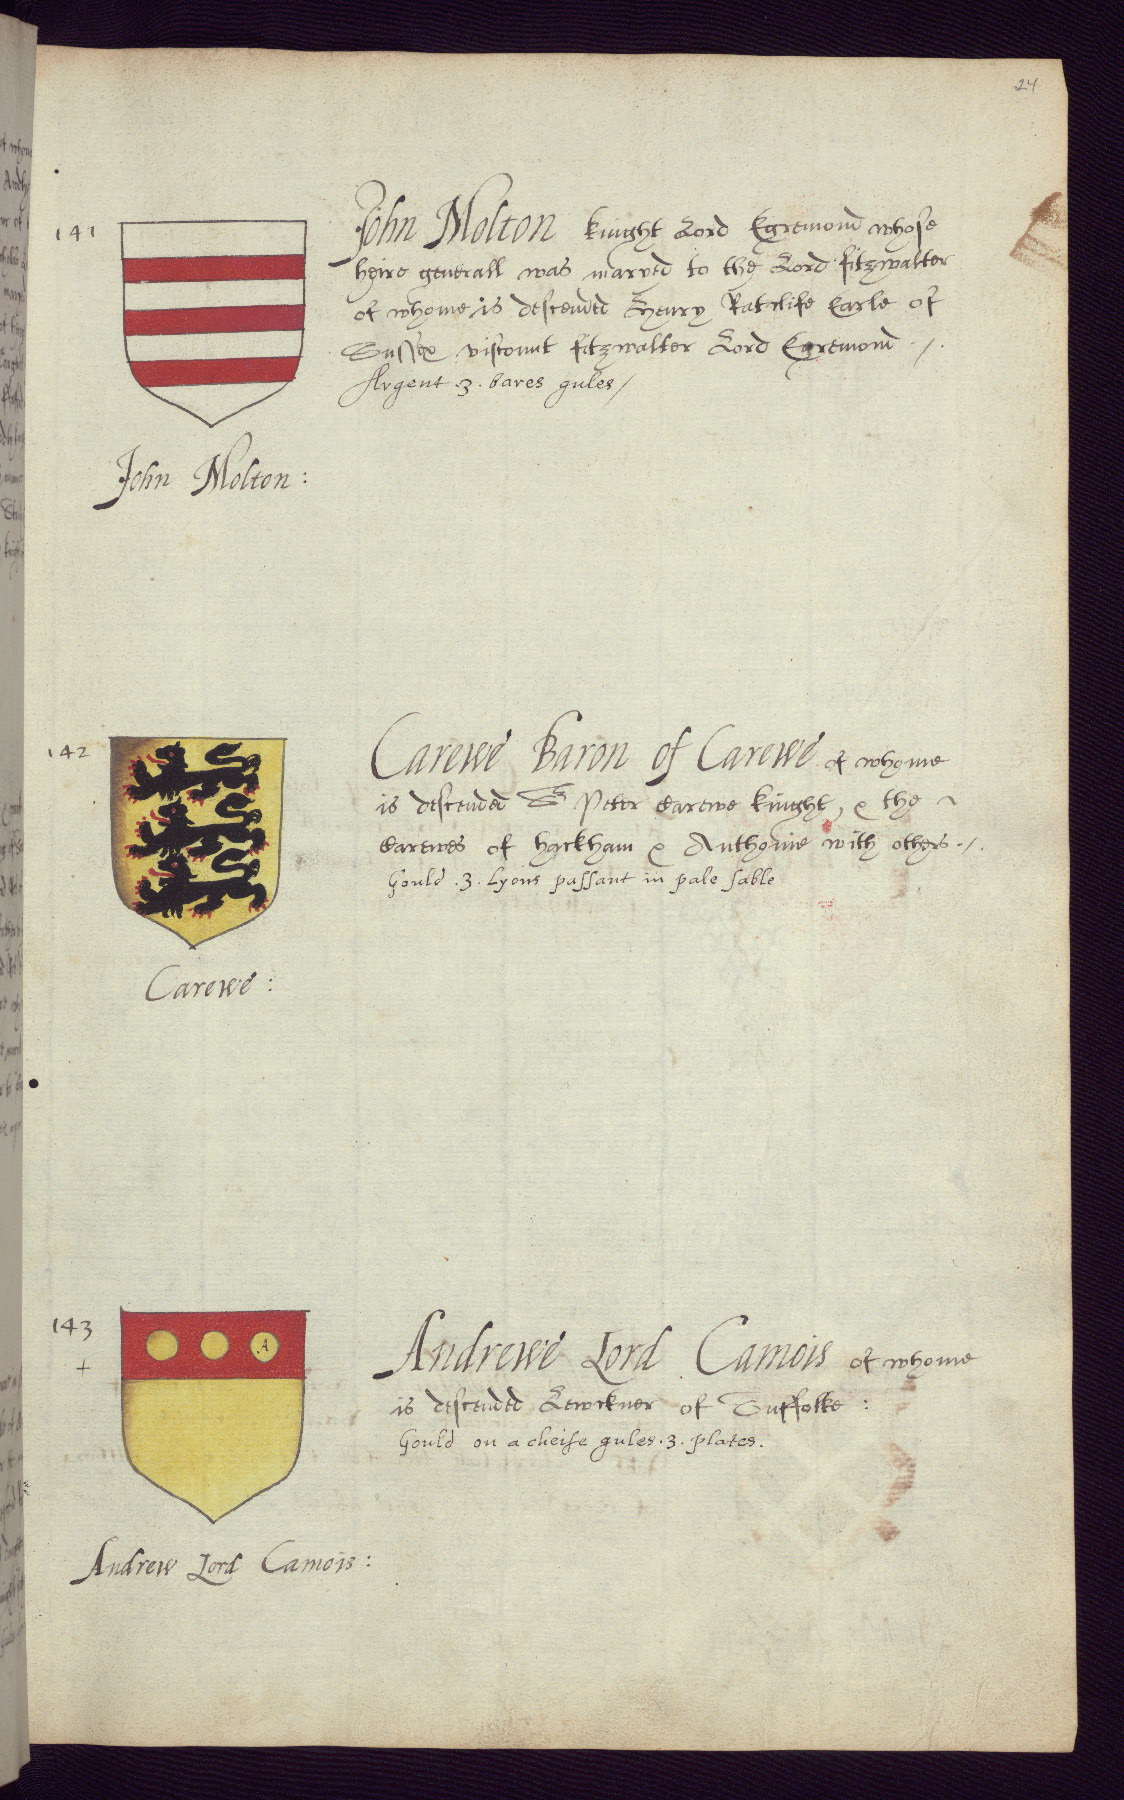 24
141
John Molton knight Lord Egremond whose
heire generall was maryed to the Lord fitzwalter
of whome is descended Henry Ratclife Earle of
Sussex viscount fitzwalter Lord Egremond ./.
Argent .3. bares gules/
John Molton:
142
Carewe Baron of Carewe of whome
is descended Sr Peter Carewe knight, & the
Carewes of hackham & Anthonie with others ./.
Gould .3. Lyons passant in pale sable
Carewe:
143
+
A
Andrewe Lord Camois of whome
is descended Lewckner of Suffolke:
Gould on a cheife gules .3. plates.
Andrew Lord Camois: